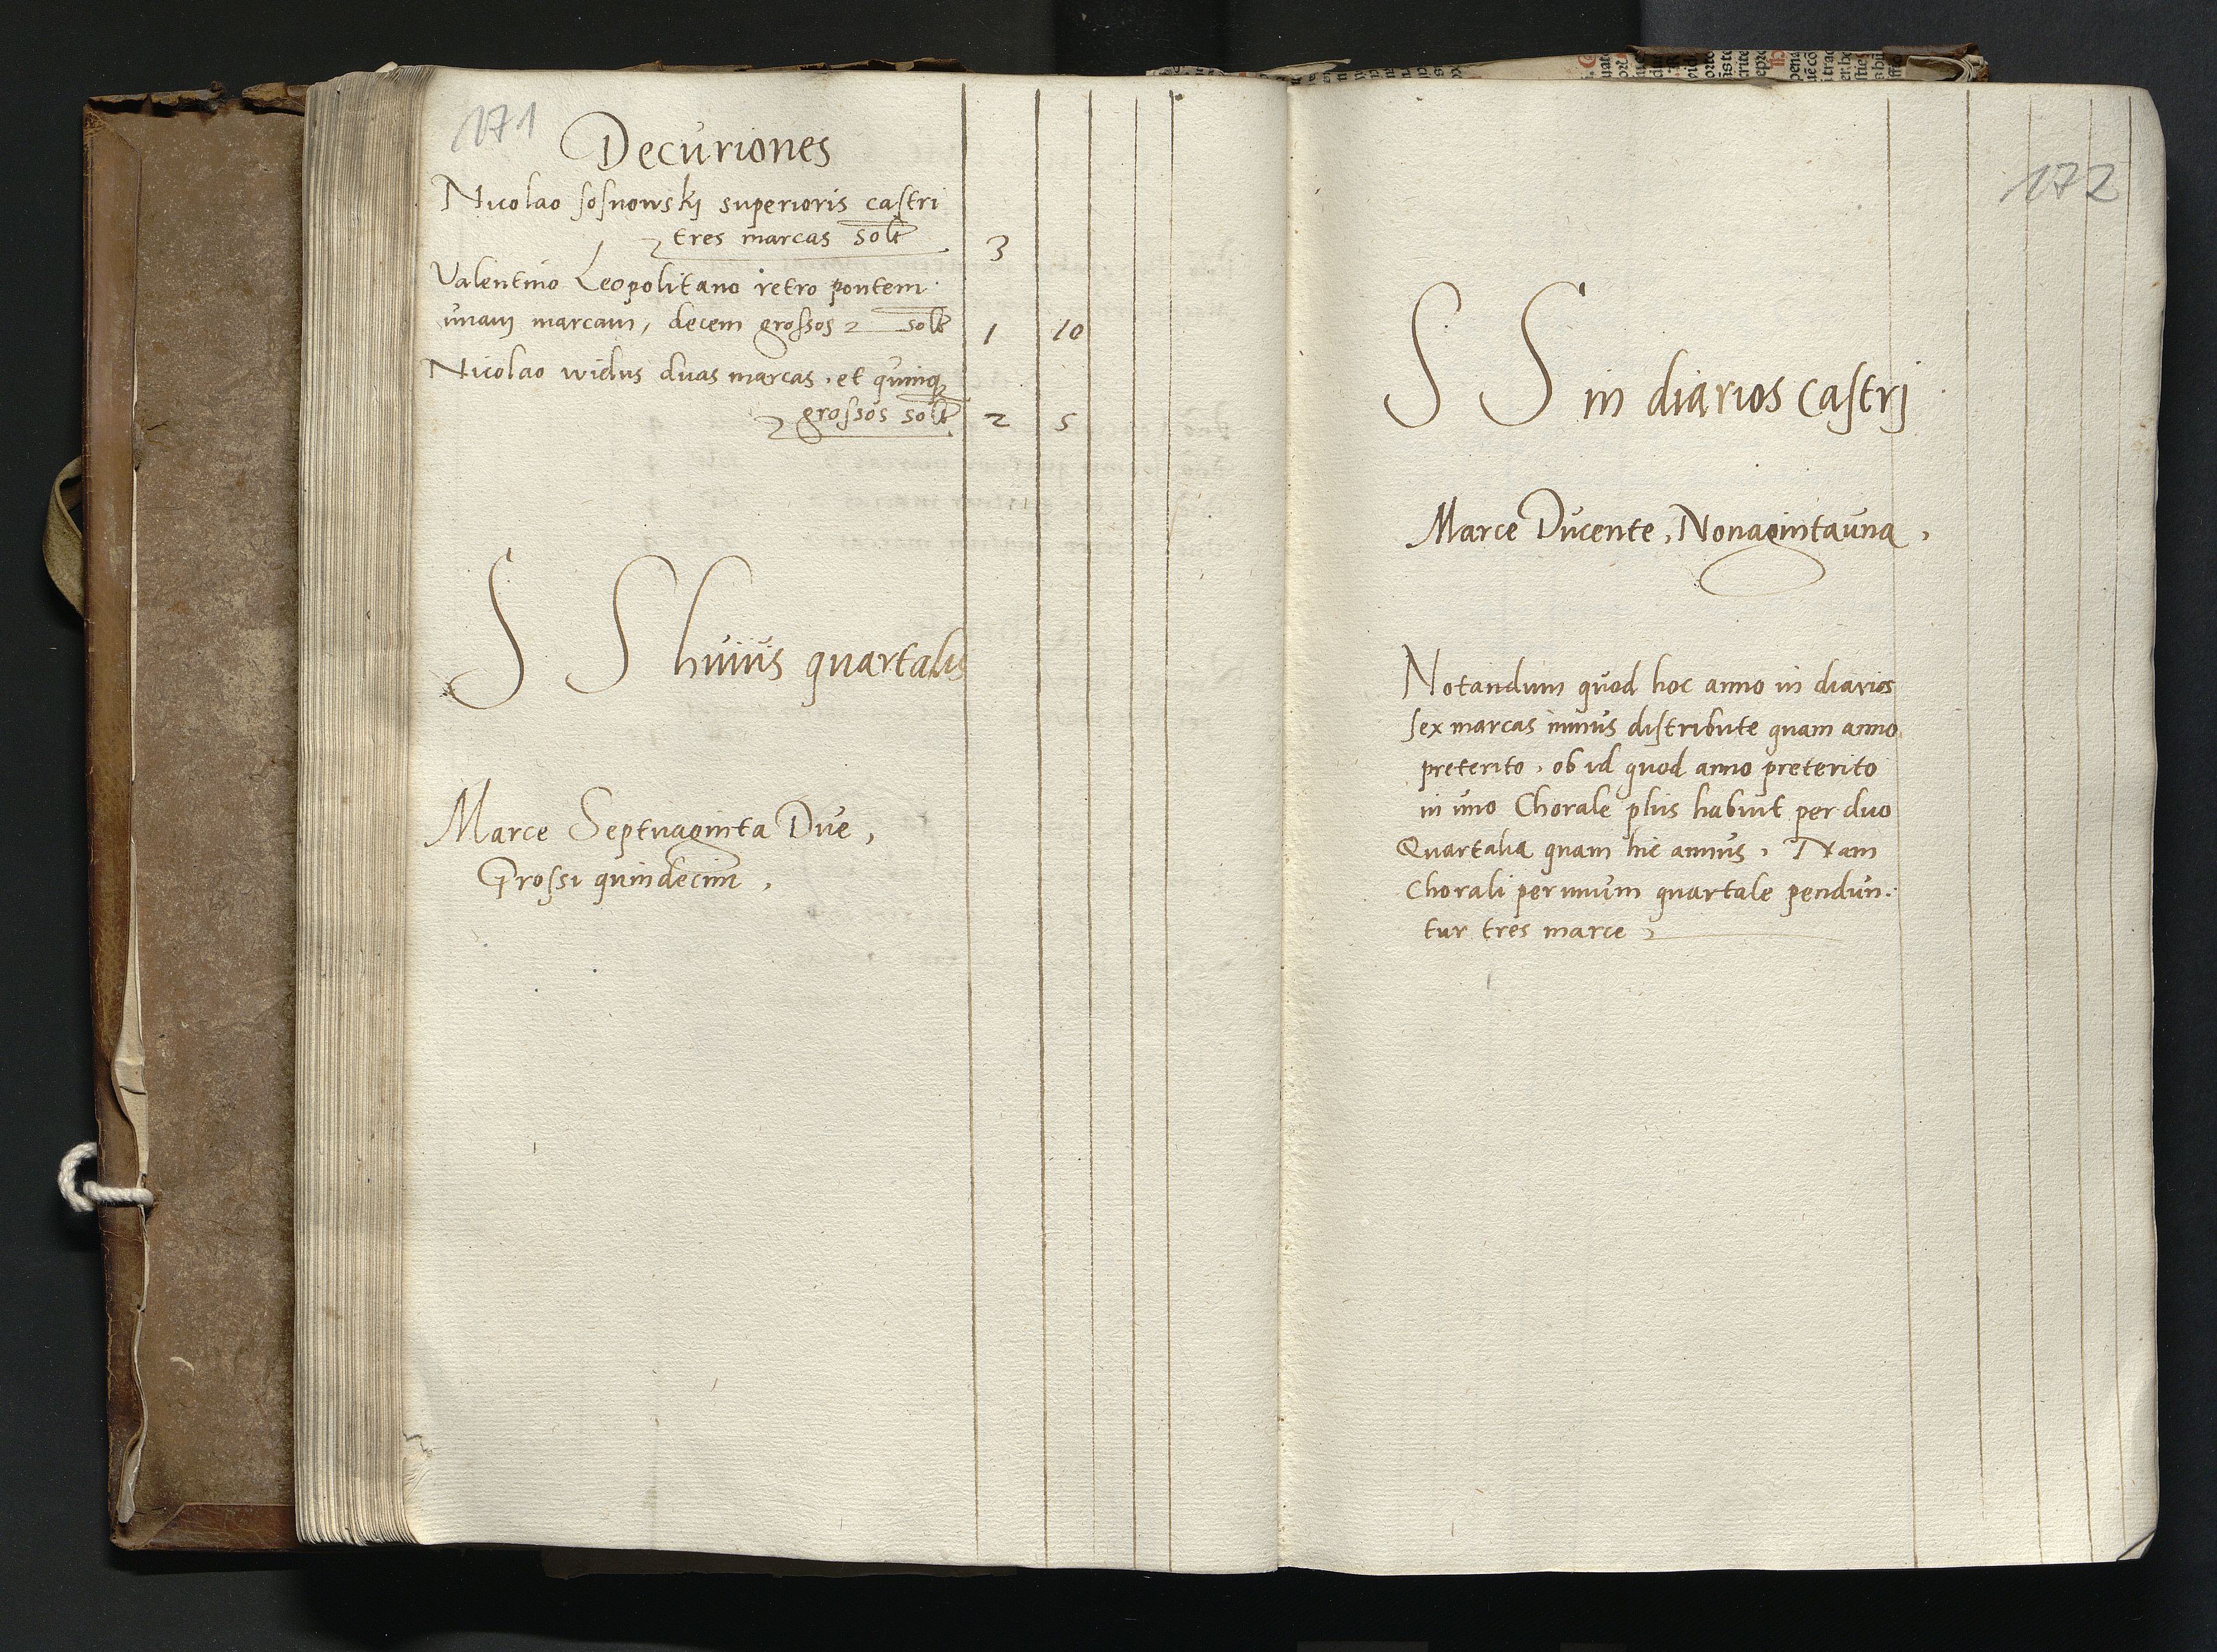 171
Decuriones
Nicolao sosnowskj superioris castri
tres marcas solt 3
Valentino Leopolitano retro pontem
unam marcam, decem grossos solt 1 10
Nicolao widus duas marcas, et quinq
grossos solt 2 5
S S huius quartalis
Marce Septuaginta Due,
Grossi quindecim,
172
S S in diarios castrj
Marce Ducente, Nonagintauna,
Notandum quod hoc anno in diarios
sex marcas minus distribute quam anno
preterito, ob id quod anno preterito
in uno Chorale plus habuit per duo
Quartalia quam hic annus, Nam
Chorali per unum quartale pendun
tur tres marce